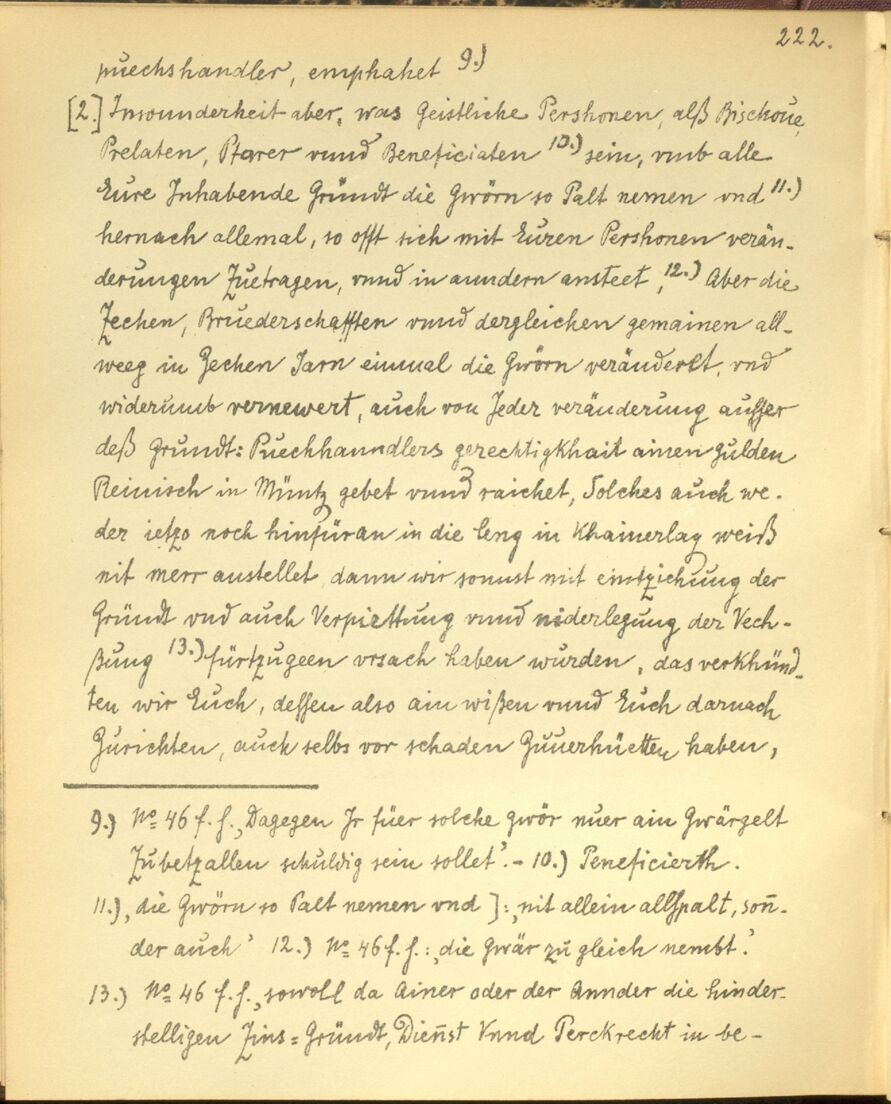 222.
puechshandler, emphahet 9.)
[2.] Insounderheit aber, was Geistliche Pershonen, alß Bischoue,
Prelaten, Pfarer vnnd Beneficiaten 10.) sein, vmb alle
Eure Inhabende Gründt die Gwörn so Palt nemen vnd 11.)
hernach allemal, so offt sich mit Euren Pershonen verän-
derungen Zuetragen, vnnd in anndern ansteet, 12.) Aber die
Zechen, Bruederschafften vnnd dergleichen gemainen all-
weeg in Zechen Jarn einmal die Gwörn veränderkt, vnd
widerumb vernewert, auch von Jeder veränderung ausser
deß Grundt: Puechhanndlers gerechtigkhait ainen Gulden
Reinisch in Müntz gebet vnnd raichet, Solches auch we-
der ietzo noch hinfüran in die leng in Khainerlay weiß
nit merr anstellet dann wir sonnst mit eintziehung der
Gründt vnd auch Verpiettung vnnd niderlegung der Vech-
ßung 13.) fürtzugeen vrsach haben wurden, das verkhünd-
ten wir Euch, dessen also ain wißen vnnd Euch darnach
Zurichten, auch selbs vor schaden Zuuerhüetten haben,
9.) No 46 f. f. „Dagegen Jr füer solche gwör nuer ain Gwärgelt
Zubetzallen schuldig sein sollet‟. - 10.) Peneficierth.
11.) „die Gwörn so Palt nemen vnd ]: „nit allein allßpalt, son̄-
der auch‟ 12.) No 46 f. f.: „die Gwär zu gleich nembt.‟
13.) No 46 f. f. „sowoll da Ainer oder der Annder die hinder-
stelligen Zins = Gründt, Dien̄st Vnnd Perckrecht in be-